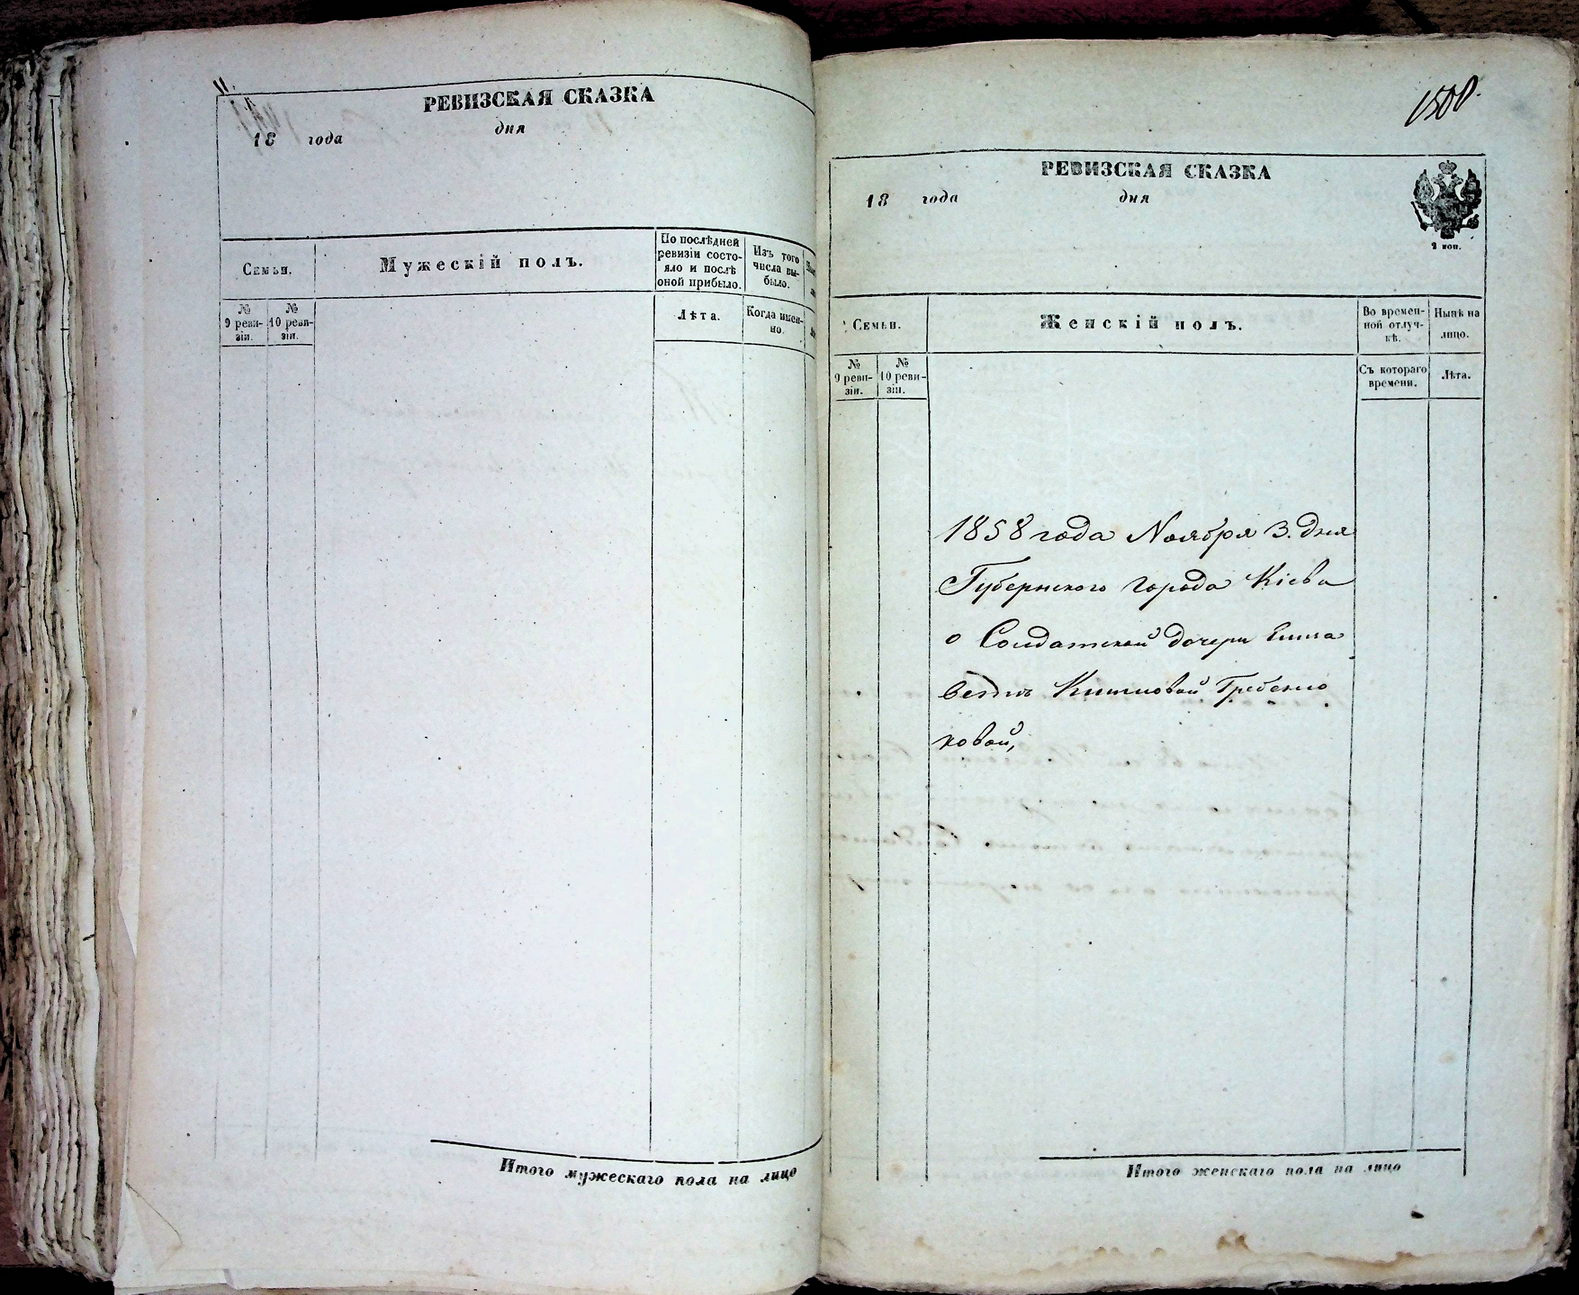 РЕВИЗСКАЯ СКАЗКА
18 года дня
Семьи.
Мужескій полъ.
По послѣдней
ревизіи состо-
яло и послѣ
оной прибыло.
Изъ того
числа вы-
было.
№
9 реви-
зіи.
№
10 реви-
зіи.
Лѣта.
Когда имен-
но.
Итого мужескаго пола на лицо
1500.
РЕВИЗСКАЯ СКАЗКА
18 года дня
2 коп.
Семьи.
Женскій полъ.
Во времен-
ной отлуч-
кѣ.
Нынѣ на
лицо.
№
9 реви-
зіи.
№
10 реви-
зіи.
Съ котораго
времени.
Лѣта.
1858 года Ноября 3. дня
Губернскаго города Кіева
о Солдатской дочери Елиза
ветѣ Гребенно
ковой,
Итого женскаго пола на лицо